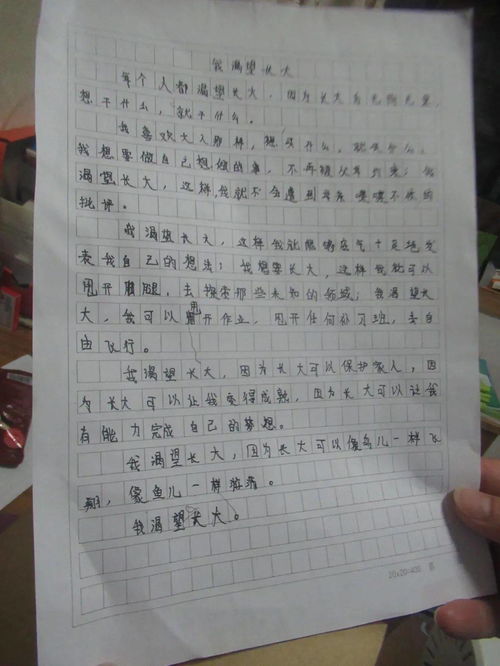 我渴望长大
每个人都渴望长大，因为长大有无限乐趣，
想干什么，就干什么。
我喜欢大人那样，想买什么，就买什么。
我想要做自己想做的事，不再被父母约束；我
渴望长大，这样，我就不会遭到母亲喋喋不休的
批评。
我渴望长大，这样我就能够底气十足地发
表我自己的想法；我想要长大，这样我就可以
甩开腿，去探索那些未知的领域；我渴望长
大，我可以甩开作业，甩开任何补习班，去自
由飞行。
我渴望长大，因为长大可以保护家人，因
为长大可以让我变得成熟，因为长大可以让我
有能力完成自己的梦想。
我渴望长大，因为长大可以像鸟儿一样飞
翔，像鱼儿一样游
我渴望长大。
20x20=400